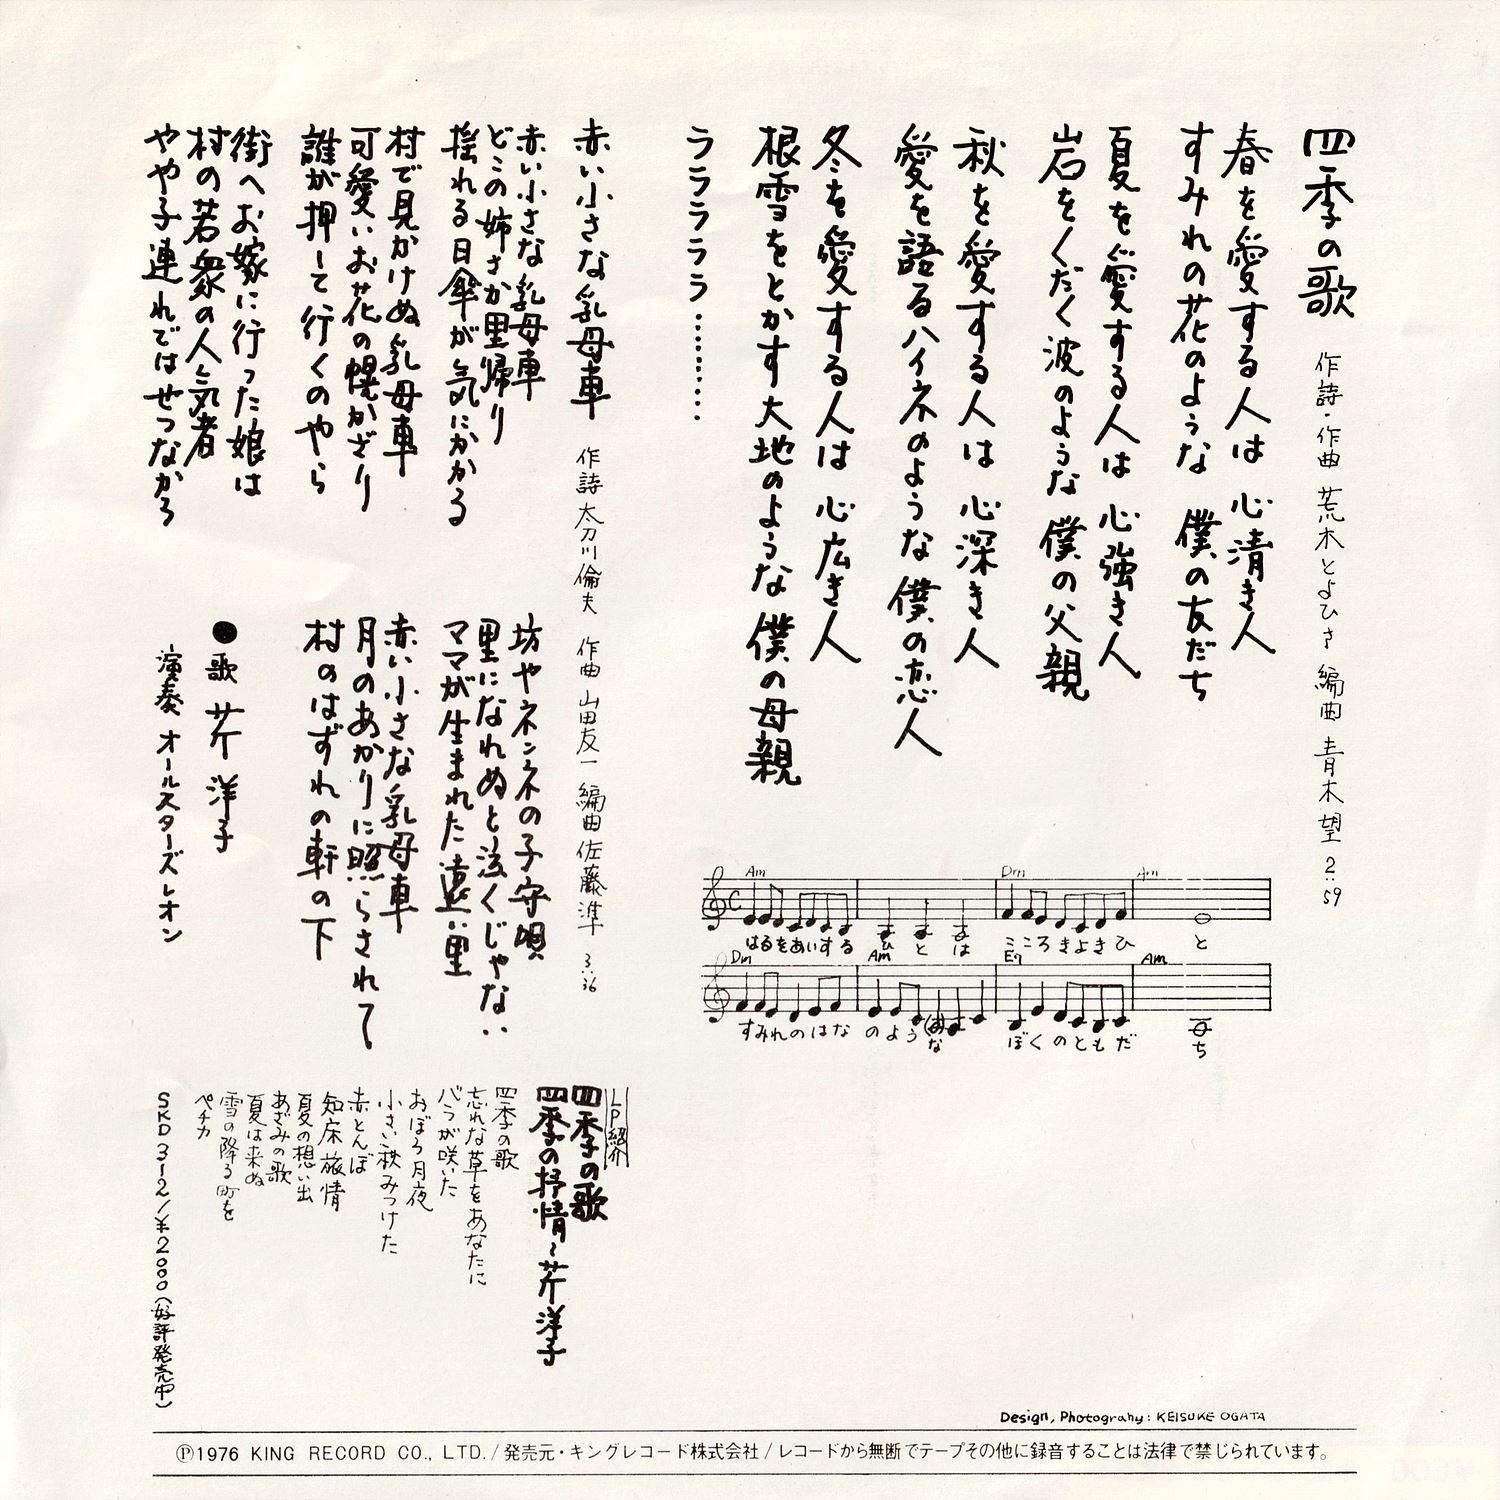 四季の歌
作詩・作曲 荒木とよひさ 編曲 青木望 2:59
春を愛する人は 心清き人
すみれの花のような 僕の友だち
夏を愛する人は 心強き人
岩をくだく波のような 僕の父親
秋を愛する人は 心深き人
愛を語るハイネのような 僕の恋人
冬を愛する人は 心広き人
根雪をとかす大地のような 僕の母親
ラララララ………
Am Dm Am
はるをあいする ひとは こころきよきひ と
Dm Am E7 Am
すみれのはな のような ぼくのともだ ち
赤い小さな乳母車
作詩 太刀川倫夫 作曲 山田友一 編曲 佐藤準 3:36
赤い小さな乳母車
どこの姉さか里帰り
揺れる日傘が気にかかる
村で見かけぬ乳母車
可愛いお花の幌かざり
誰が押して行くのやら
街へお嫁に行った娘は
村の若衆の人気者
やや子連れではせつなかろ
坊やネンネの子守唄
里になれぬと泣くじゃない
ママが生まれた遠い里
赤い小さな乳母車
月のあかりに照らされて
村のはずれの軒の下
●歌 芹洋子
演奏 オールスターズレオン
LP紹介
四季の歌
四季の抒情〜芹洋子
四季の歌
忘れな草をあなたに
バラが咲いた
おぼろ月夜
小さい秋みつけた
赤とんぼ
知床旅情
夏の想い出
あざみの歌
夏は来ぬ
雪の降る町を
ペチカ
SKD 312/¥2000(好評発売中)
Design, Photograhy: KEISUKE OGATA
Ⓟ1976 KING RECORD CO., LTD./発売元・キングレコード株式会社/レコードから無断でテープその他に録音することは法律で禁じられています。